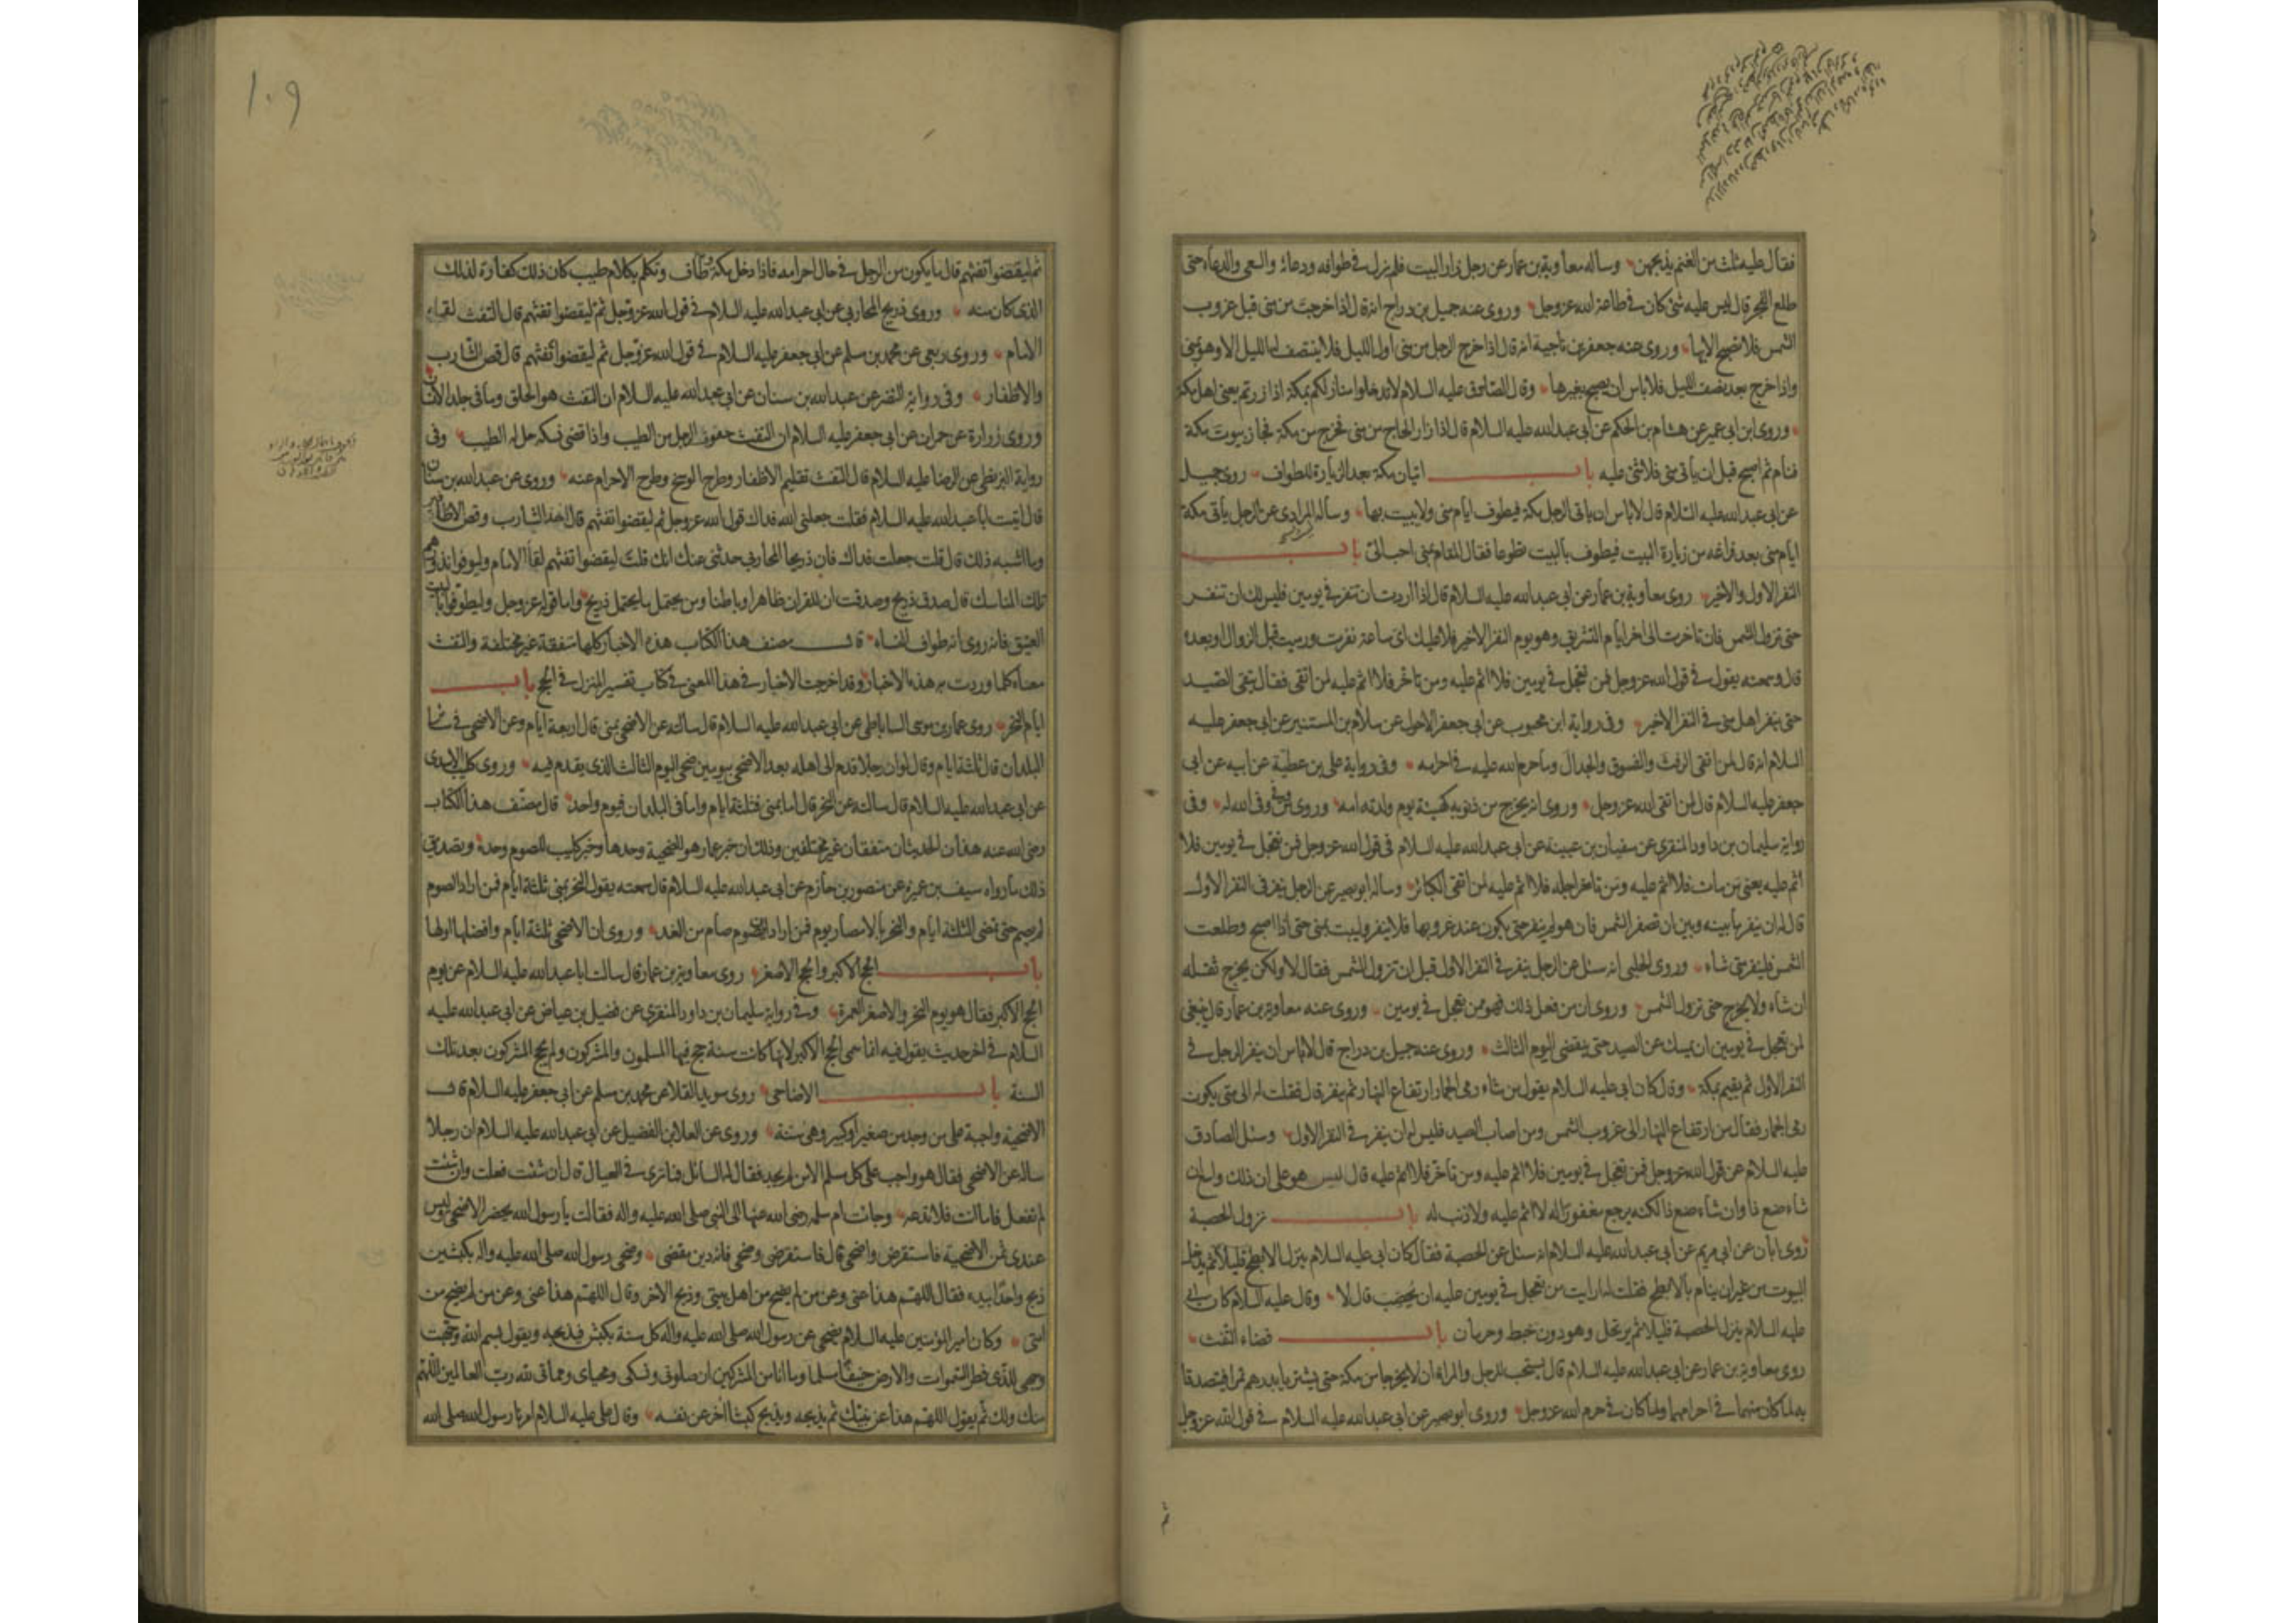 فقال عليه ثلث من الغنم يذبحهن وساله معاوية بن عمار عن رجل زار البيت فلم يزل في طوافه ودعائه والسعي والدعاء حتى
طلع الفجر قال ليس عليه شئ كان في طاعة الله عز وجل وروى عنه جميل بن دراج انه قال اذا خرجت من منى قبل غروب
الشمس فلا تصبح الا بها وروى عنه جعفر بن ناجية انه قال اذا خرج الرجل من منى اول الليل فلا ينتصف له الليل الا وهو بمنى
واذا خرج بعد نصف الليل فلا باس ان يصبح بغيرها وقال الصادق عليه السلام لا تدخلوا منازلكم بمكة اذا زرتم يعني اهل مكة
وروى ابن ابي عمير عن هشام بن الحكم عن ابي عبد الله عليه السلام قال اذا زار الحاج من منى فخرج من مكة فجاز بيوت مكة
فنام ثم اصبح قبل ان ياتي منى فلا شئ عليه باب اتيان مكة بعد الزيارة للطواف روى جميل
عن ابي عبد الله عليه السلام قال لا باس ان ياتي الرجل مكة فيطوف ايام منى ولا يبيت بها وساله المرادي عن الرجل يأتي مكة
ايام منى بعد فراغه من زيارة البيت فيطوف بالبيت تطوعا فقال المقام بمنى احب الي باب
النفر الاول والاخير روى معاوية بن عمار عن ابي عبد الله عليه السلام قال اذا اردت ان تنفر في يومين فليس لك ان تنفر
حتى تزول الشمس فان تاخرت الى اخر ايام التشريق وهو يوم النفر الاخير فلا عليك اى ساعة نفرت ورميت قبل الزوال او بعده
قال وسمعته يقول في قول الله عز وجل فمن تعجل في يومين فلا اثم عليه ومن تاخر فلا اثم عليه لمن اتقى فقال يتقى الصيد
حتى ينفر اهل منى في النفر الاخير وفي رواية ابن محبوب عن ابي جعفر الاحول عن سلام بن المستنير عن ابي جعفر عليه
السلام انه قال لمن اتقى الرفث والفسوق والجدال وما حرم الله عليه في احرامه وفي رواية علي بن عطية عن ابيه عن ابي
جعفر عليه السلام قال لمن اتقى الله عز وجل وروى انه يخرج من ذنوبه كهيئة يوم ولدته امه وروى من وفى وفى الله له وفي
رواية سليمان بن داود المنقري عن سفيان بن عيينة عن ابي عبد الله عليه السلام في قول الله عز وجل فمن تعجل في يومين فلا
اثم عليه يعني من مات فلا اثم عليه ومن تاخر اجله فلا اثم عليه لمن اتقى الكبائر وساله ابو بصير عن الرجل ينفر في النفر الاول
قال له ان ينفر ما بينه وبين ان تصفر الشمس فان هو لم ينفر حتى يكون عند غروبها فلا ينفر وليبت بمنى حتى اذا اصبح وطلعت
الشمس فلينفر متى شاء وروى الحلبي انه سئل عن الرجل ينفر في النفر الاول قبل ان تزول الشمس فقال لا ولكن يخرج ثقله
ان شاء ولا يخرج حتى تزول الشمس وروى ان من فعل ذلك فهو ممن تعجل في يومين وروى عنه معاوية بن عمار قال ينبغي
لمن تعجل في يومين ان يمسك عن الصيد حتى ينقضي اليوم الثالث وروى عنه جميل بن دراج قال لا باس ان ينفر الرجل في
النفر الاول ثم يقيم بمكة وقال كان ابي عليه السلام يقول من شاء رمى الجمار ارتفاع النهار ثم ينفر قال فقلت له الى متى يكون
رمى الجمار فقال من ارتفاع النهار الى غروب الشمس ومن اصاب الصيد فليس له ان ينفر في النفر الاول وسئل الصادق
عليه السلام عن قول الله عز وجل فمن تعجل في يومين فلا اثم عليه ومن تاخر فلا اثم عليه قال ليس هو على ان ذلك واسع ان
شاء صنع ذا وان شاء صنع ذا لكنه يرجع مغفورا له لا اثم عليه ولا ذنب له باب نزول الحصبة
روى ابان عن ابي مريم عن ابي عبد الله عليه السلام انه سئل عن الحصبة فقال كان ابي عليه السلام ينزل الابطح قليلا ثم يدخل
البيوت من غير ان ينام بالابطح فقلت له ارايت من تعجل في يومين عليه ان يحصب قال لا وقال عليه السلام كان ابي
عليه السلام ينزل الحصبة قليلا ثم يرتحل وهو دون خبط وحرمان باب قضاء التفث
روى معاوية بن عمار عن ابي عبد الله عليه السلام قال يستحب للرجل والمراة ان لا يخرجا من مكة حتى يشتريا بدرهم تمرا فيتصدقا
به لما كان منهما في احرامهما ولما كان في حرم الله عز وجل وروى ابو بصير عن ابي عبد الله عليه السلام في قول الله عز وجل
ثم
١٠٩
ثم ليقضوا تفثهم قال ما يكون من الرجل في حال احرامه فاذا دخل مكة وطاف وتكلم بكلام طيب كان ذلك كفارة لذلك
الذي كان منه وروى ذريح المحاربي عن ابي عبد الله عليه السلام في قول الله عز وجل ثم ليقضوا تفثهم قال التفث لقاء
الامام وروى ربعي عن محمد بن مسلم عن ابي جعفر عليه السلام في قول الله عز وجل ثم ليقضوا تفثهم قال قص الشارب
والاظفار وفي رواية النضر عن عبد الله بن سنان عن ابي عبد الله عليه السلام ان التفث هو الحلق وما في جلد الانسان
وروى زرارة عن حمران عن ابي جعفر عليه السلام ان التفث حفوف الرجل من الطيب واذا قضى نسكه حل له الطيب وفي
رواية البزنطي عن الرضا عليه السلام قال التفث تقليم الاظفار وطرح الوسخ وطرح الاحرام عنه وروى عن عبد الله بن سنان
قال اتيت ابا عبد الله عليه السلام فقلت جعلني الله فداك قول الله عز وجل ثم ليقضوا تفثهم قال اخذ الشارب وقص الاظافير
وما اشبه ذلك قال قلت جعلت فداك فان ذريحا المحاربي حدثني عنك انك قلت ليقضوا تفثهم لقاء الامام وليوفوا نذورهم
تلك المناسك قال صدق ذريح وصدقت ان للقران ظاهرا وباطنا ومن يحتمل ما يحتمل ذريح واما قوله عز وجل وليطوفوا بالبيت
العتيق فانه روى انه طواف النساء قال مصنف هذا الكتاب هذه الاخبار كلها متفقة غير مختلفة والتفث
معناه كلما وردت به هذه الاخبار وقد اخرجت الاخبار في هذا المعنى في كتاب تفسير المنزل في الحج باب
ايام النحر روى عمار بن موسى الساباطي عن ابي عبد الله عليه السلام قال سالته عن الاضحى بمنى قال اربعة ايام وعن الاضحى في سائر
البلدان قال ثلثة ايام وقال لو ان رجلا قدم الى اهله بعد الاضحى بيومين ضحى اليوم الثالث الذي يقدم فيه وروى كليب الاسدي
عن ابي عبد الله عليه السلام قال سالته عن النحر قال اما بمنى فثلثة ايام واما في البلدان فيوم واحد قال مصنف هذا الكتاب
رضى الله عنه هذان الحديثان متفقان غير مختلفين وذلك ان خبر عمار هو للضحية وحدها وخبر كليب للصوم وحده وتصديق
ذلك ما رواه سيف بن عميرة عن منصور بن حازم عن ابي عبد الله عليه السلام قال سمعته يقول النحر بمنى ثلثة ايام فمن اراد الصوم
لم يصم حتى تمضى الثلثة ايام والنحر بالامصار يوم فمن اراد ان يصوم صام من الغد وروى ان الاضحى ثلثة ايام وافضلها اولها
باب الحج الاكبر والحج الاصغر روى معاوية بن عمار قال سالت ابا عبد الله عليه السلام عن يوم
الحج الاكبر فقال هو يوم النحر والاصغر العمرة وفي رواية سليمان بن داود المنقري عن فضيل بن عياض عن ابي عبد الله عليه
السلام في اخر حديث يقول فيه انما سمى الحج الاكبر لانها كانت سنة حج فيها المسلمون والمشركون ولم يحج المشركون بعد تلك
السنة باب الاضاحي روى سويد القلاء عن محمد بن مسلم عن ابي جعفر عليه السلام قال
الاضحية واجبة على من وجد من صغير او كبير وهى سنة وروى عن العلا بن الفضيل عن ابي عبد الله عليه السلام ان رجلا
ساله عن الاضحى فقال هو واجب على كل مسلم الا من لم يجد فقال له السائل فما ترى في العيال قال ان شئت فعلت وان شئت
لم تفعل فاما انت فلا تدعه وجاءت ام سلمة رضى الله عنها الى النبي صلى الله عليه واله فقالت يا رسول الله يحضر الاضحى وليس
عندي ثمن الاضحية فاستقرض واضحى قال فاستقرضى وضحى فانه دين مقضى وضحى رسول الله صلى الله عليه واله بكبشين
ذبح واحدا بيده فقال اللهم هذا عنى وعن من لم يضح من اهل بيتي وذبح الاخر وقال اللهم هذا عنى وعن من لم يضح من
امتى وكان امير المؤمنين عليه السلام يضحى عن رسول الله صلى الله عليه واله كل سنة بكبش فيذبحه ويقول بسم الله وجهت
وجهي للذي فطر السموات والارض حنيفا مسلما وما انا من المشركين ان صلوتى ونسكى ومحياى ومماتى لله رب العالمين اللهم
منك ولك ثم يقول اللهم هذا عن نبيك ثم يذبحه ويذبح كبشا اخر عن نفسه وقال علي عليه السلام امرنا رسول الله صلى الله